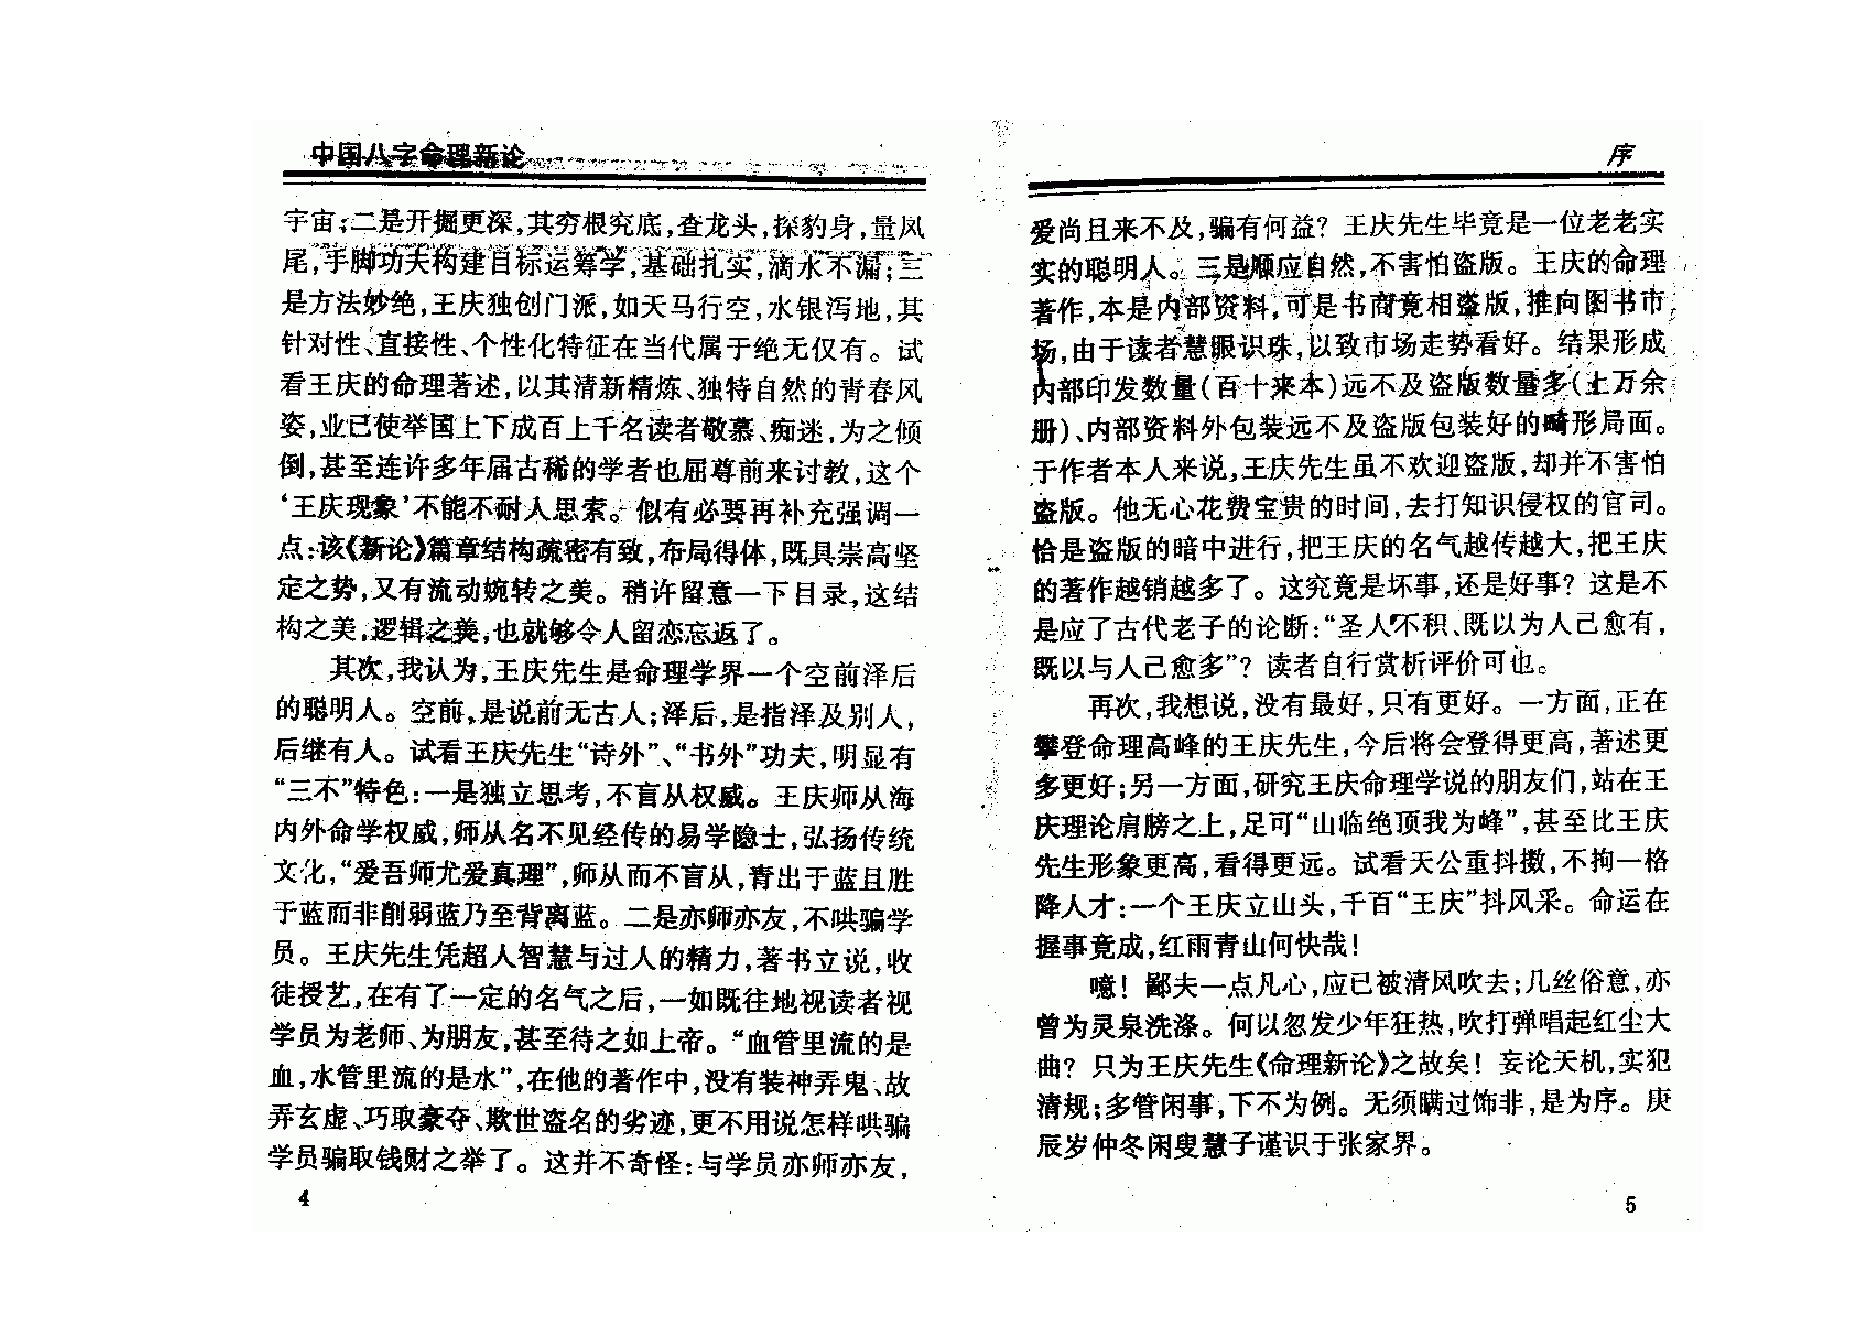 中国八字命理新论
宇宙;二是开掘更深,其穷根究底,查龙头,探豹身,量凤
尾,手脚功夫构建目标运筹学,基础扎实,滴水不漏;三
是方法妙绝,王庆独创门派,如天马行空,水银泻地,其
针对性、直接性、个性化特征在当代属于绝无仅有。试
看王庆的命理著述,以其清新精炼、独特自然的青春风
姿,业已使举国上下成百上千名读者敬慕、痴迷,为之倾
倒,甚至连许多年届古稀的学者也屈尊前来讨教,这个
‘王庆现象’不能不耐人思索。似有必要再补充强调一
点:该《新论》篇章结构疏密有致,布局得体,既具崇高坚
定之势,又有流动婉转之美。稍许留意一下目录,这结
构之美,逻辑之美,也就够令人留恋忘返了。
其次,我认为,王庆先生是命理学界一个空前泽后
的聪明人。空前,是说前无古人;泽后,是指泽及别人,
后继有人。试看王庆先生“诗外”、“书外”功夫,明显有
“三不”特色:一是独立思考,不盲从权威。王庆师从海
内外命学权威,师从名不见经传的易学隐士,弘扬传统
文化,“爱吾师尤爱真理”,师从而不盲从,青出于蓝且胜
于蓝而非削弱蓝乃至背离蓝。二是亦师亦友,不哄骗学
员。王庆先生凭超人智慧与过人的精力,著书立说,收
徒授艺,在有了一定的名气之后,一如既往地视读者视
学员为老师、为朋友,甚至待之如上帝。“血管里流的是
血,水管里流的是水”,在他的著作中,没有装神弄鬼、故
弄玄虚、巧取豪夺、欺世盗名的劣迹,更不用说怎样哄骗
学员骗取钱财之举了。这并不奇怪:与学员亦师亦友,
4
序
爱尚且来不及,骗有何益?王庆先生毕竟是一位老老实
实的聪明人。三是顺应自然,不害怕盗版。王庆的命理
著作,本是内部资料,可是书商竟相盗版,推向图书市
场,由于读者慧眼识珠,以致市场走势看好。结果形成
内部印发数量(百十来本)远不及盗版数量多(上万余
册)、内部资料外包装远不及盗版包装好的畸形局面。
于作者本人来说,王庆先生虽不欢迎盗版,却并不害怕
盗版。他无心花费宝贵的时间,去打知识侵权的官司。
恰是盗版的暗中进行,把王庆的名气越传越大,把王庆
的著作越销越多了。这究竟是坏事,还是好事?这是不
是应了古代老子的论断:“圣人不积、既以为人己愈有,
既以与人己愈多”?读者自行赏析评价可也。
再次,我想说,没有最好,只有更好。一方面,正在
攀登命理高峰的王庆先生,今后将会登得更高,著述更
多更好;另一方面,研究王庆命理学说的朋友们,站在王
庆理论肩膀之上,足可“山临绝顶我为峰”,甚至比王庆
先生形象更高,看得更远。试看天公重抖擞,不拘一格
降人才:一个王庆立山头,千百“王庆”抖风采。命运在
握事竟成,红雨青山何快哉!
噫!鄙夫一点凡心,应已被清风吹去;几丝俗意,亦
曾为灵泉洗涤。何以忽发少年狂热,吹打弹唱起红尘大
曲?只为王庆先生《命理新论》之故矣!妄论天机,实犯
清规;多管闲事,下不为例。无须瞒过饰非,是为序。庚
辰岁仲冬闲叟慧子谨识于张家界。
5